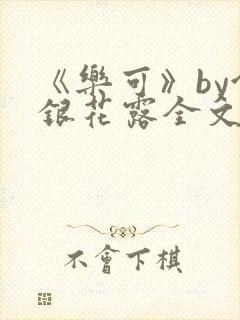 《樂可》by
銀花露全文
不會下棋